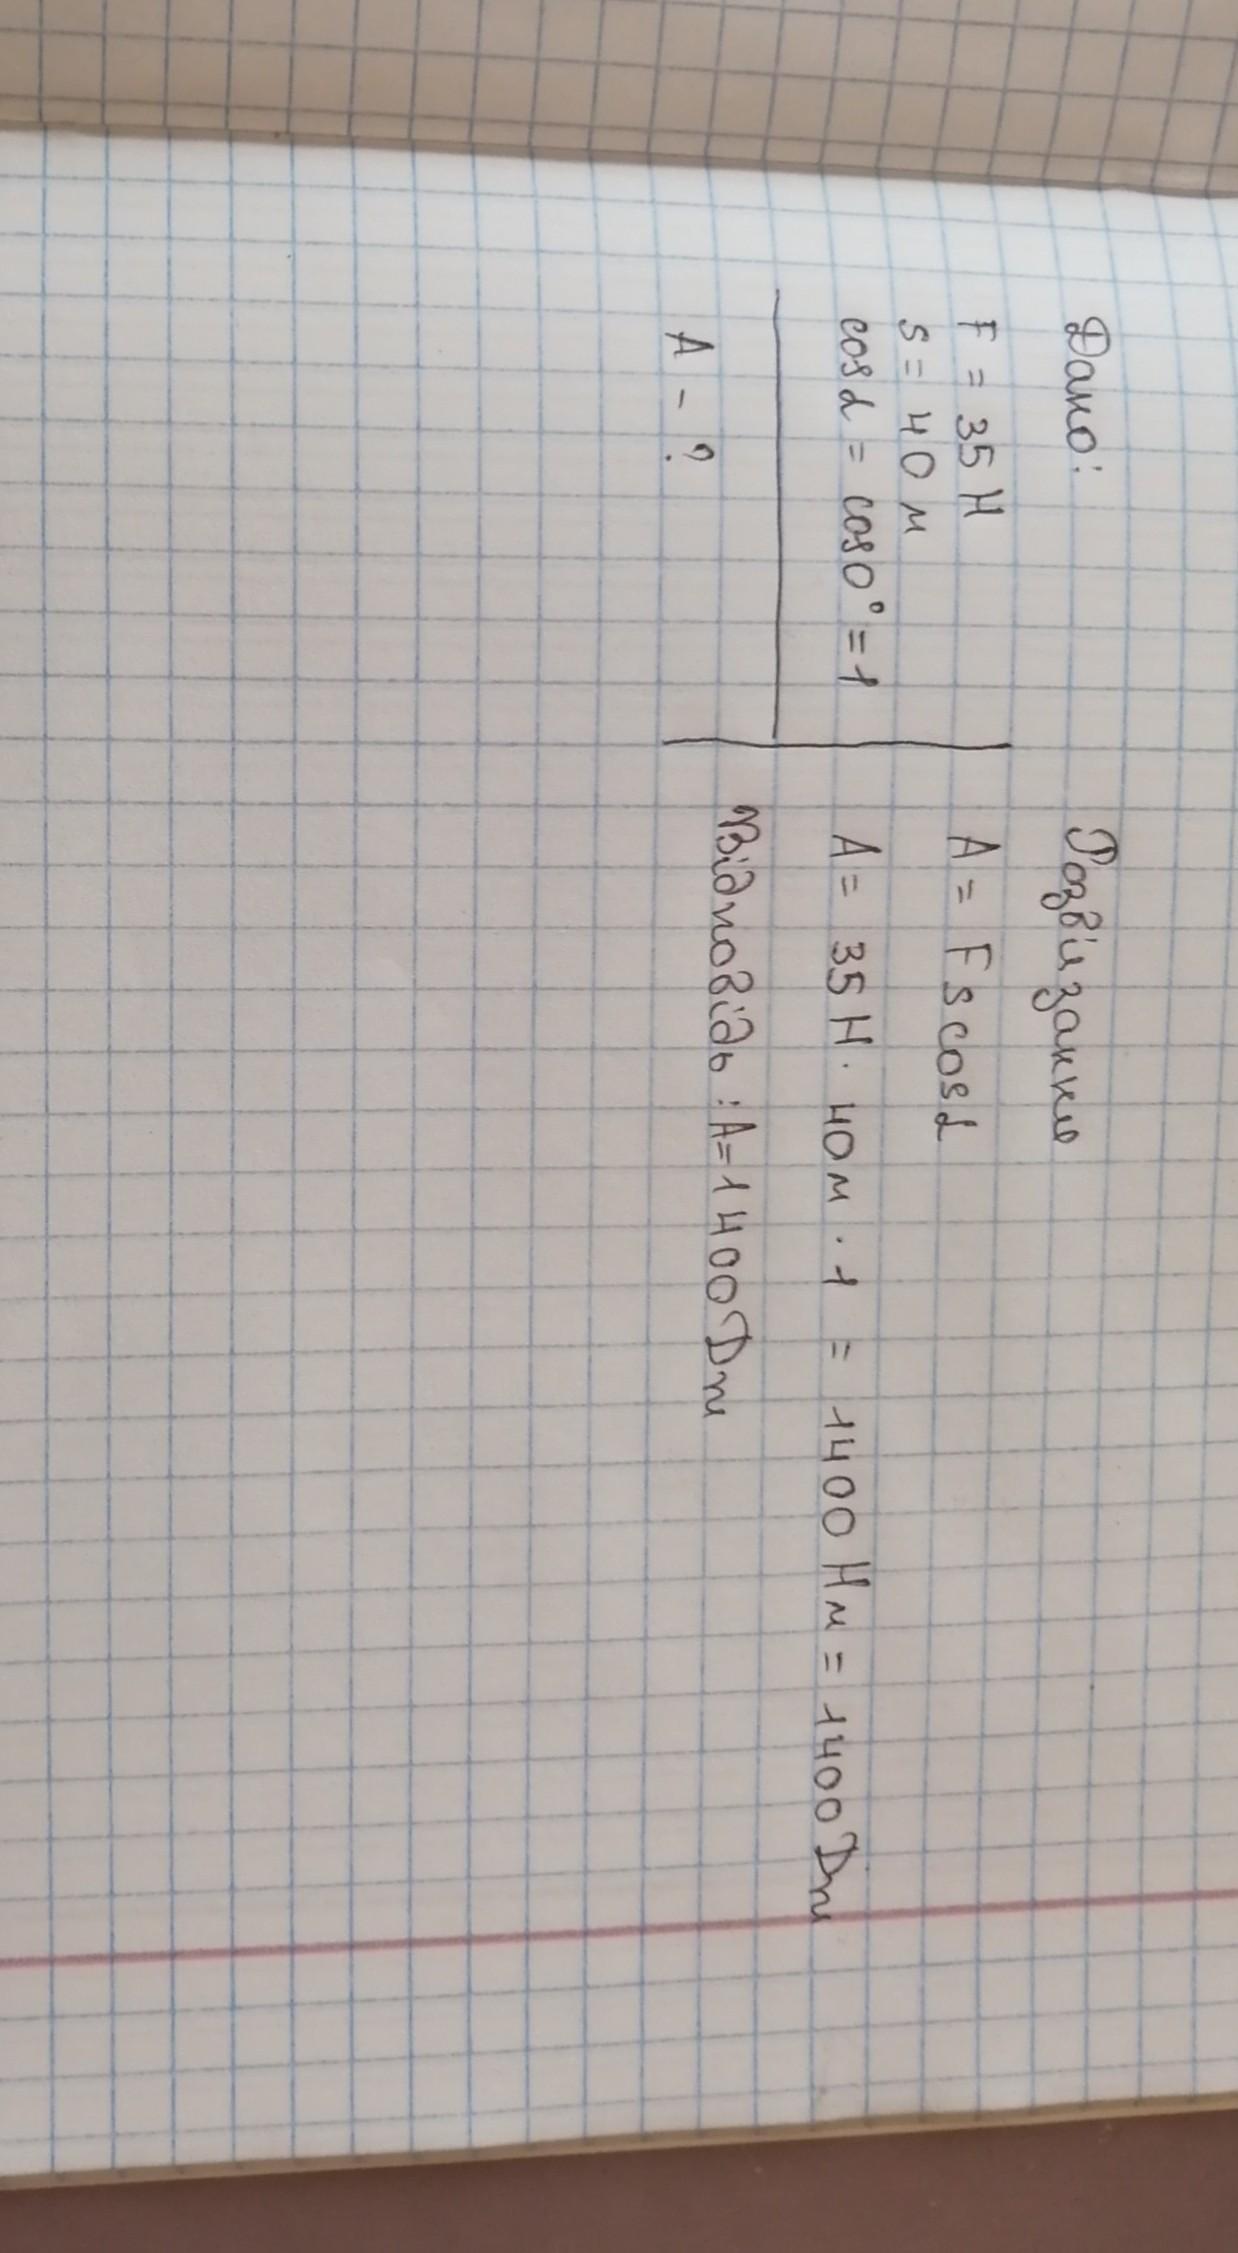 Дано:
F = 35 Н
s = 40 м
cosα = cos0° = 1
A - ?
Розв'язання
A = F s cosα
A = 35 Н · 40 м · 1 = 1400 Нм = 1400 Дж
Відповідь: A = 1400 Дж